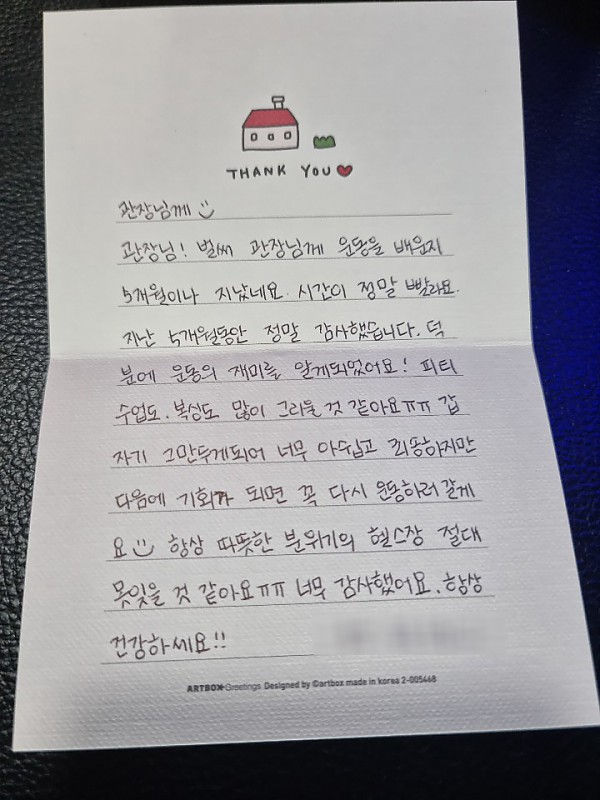 THANK YOU
관장님께
관장님! 벌써 관장님께 운동을 배운지
5개월이나 지났네요. 시간이 정말 빨라요.
지난 5개월동안 정말 감사했습니다. 덕
분에 운동의 재미를 알게되었어요! 피티
수업도. 복싱도 많이 그리울 것 같아요ㅠㅠ 갑
자기 그만두게되어 너무 아쉽고 죄송하지만
다음에 기회가 되면 꼭 다시 운동하러 갈게
요 항상 따뜻한 분위기의 헬스장 절대
못잊을 것 같아요ㅠㅠ 너무 감사했어요. 항상
건강하세요!!
ARTBOX Greetings Designed by ©artbox made in korea 2-005468